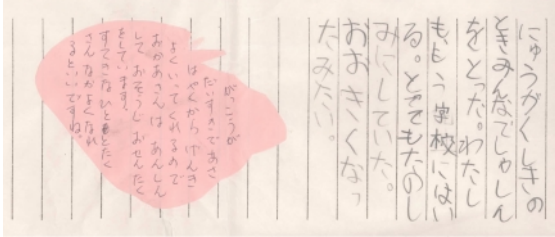 にゅうがくしきの
ときみんなでしゃしん
をとった。わたし
ももう学校にはい
る。とてもたのし
みにしていた。
おおきくなっ
たみたい。
がっこうが
だいすきであさ
はやくから げんき
よくいってくれるので
おかあさんは あんしん
して おそうじ おせんたく
をしています。
すてきなひとたく
さん なかよくなれ
るといいですね。